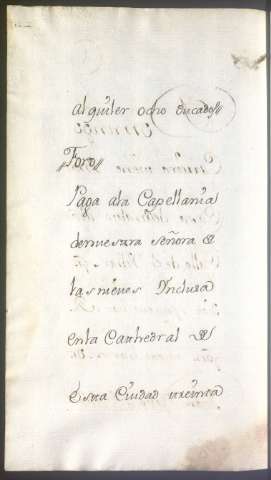 Alquiler ocho Ducados//
//Foro//
Paga ala Capellania
denuestra señora de
las nieves Inclusa
enla Cathedral de
Esta Ciudad treinta